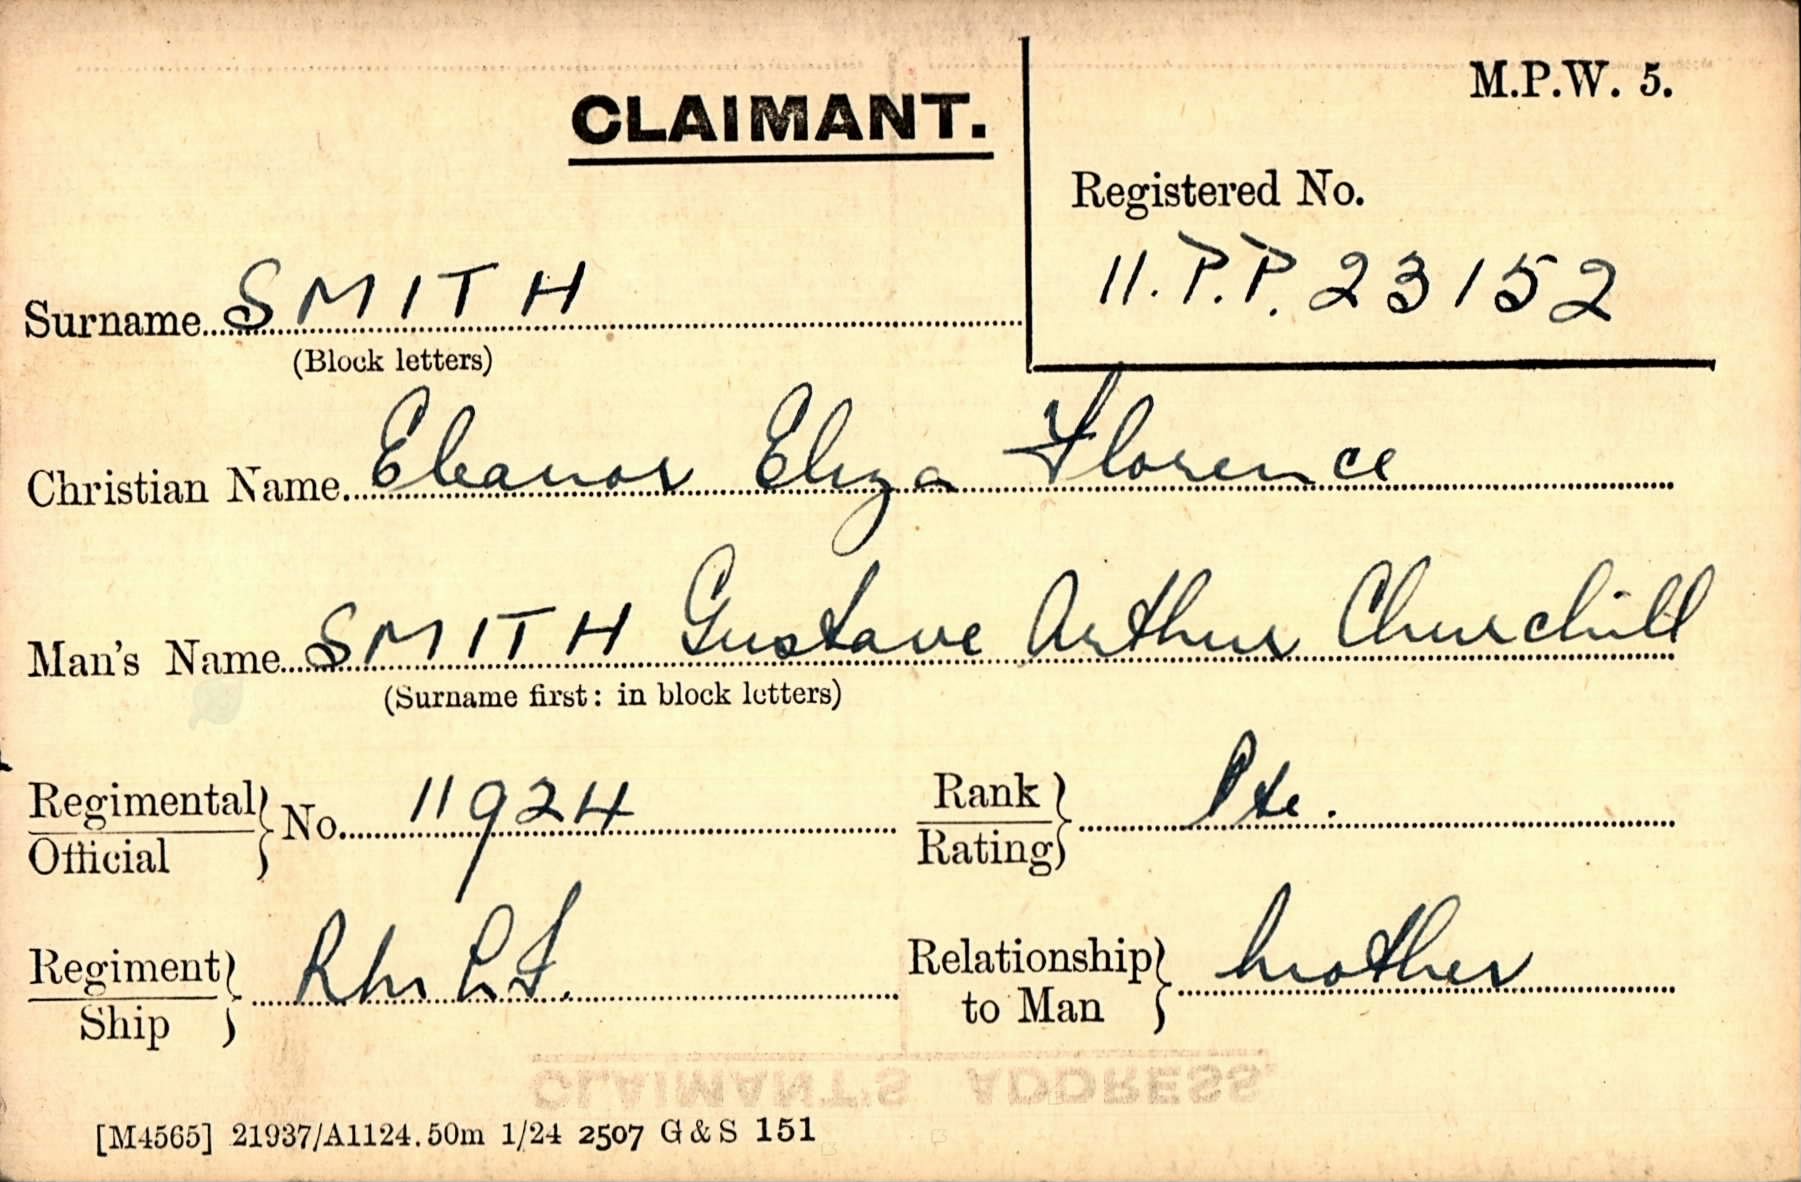 M.P.W. 5.
CLAIMANT.
Registered No.
11.P.P. 23152
Surname SMITH
(Block letters)
Christian Name Eleanor Eliza Florence
Man's Name SMITH Gustave Arthur Churchill
(Surname first: in block letters)
Regimental
Official } No. 11924
Rank
Rating } Pte.
Regiment
Ship
Relationship
to Man } mother
CLAIMANT'S ADDRESS.
[M4565] 21937/A1124.50m 1/24 2507 G & S 151